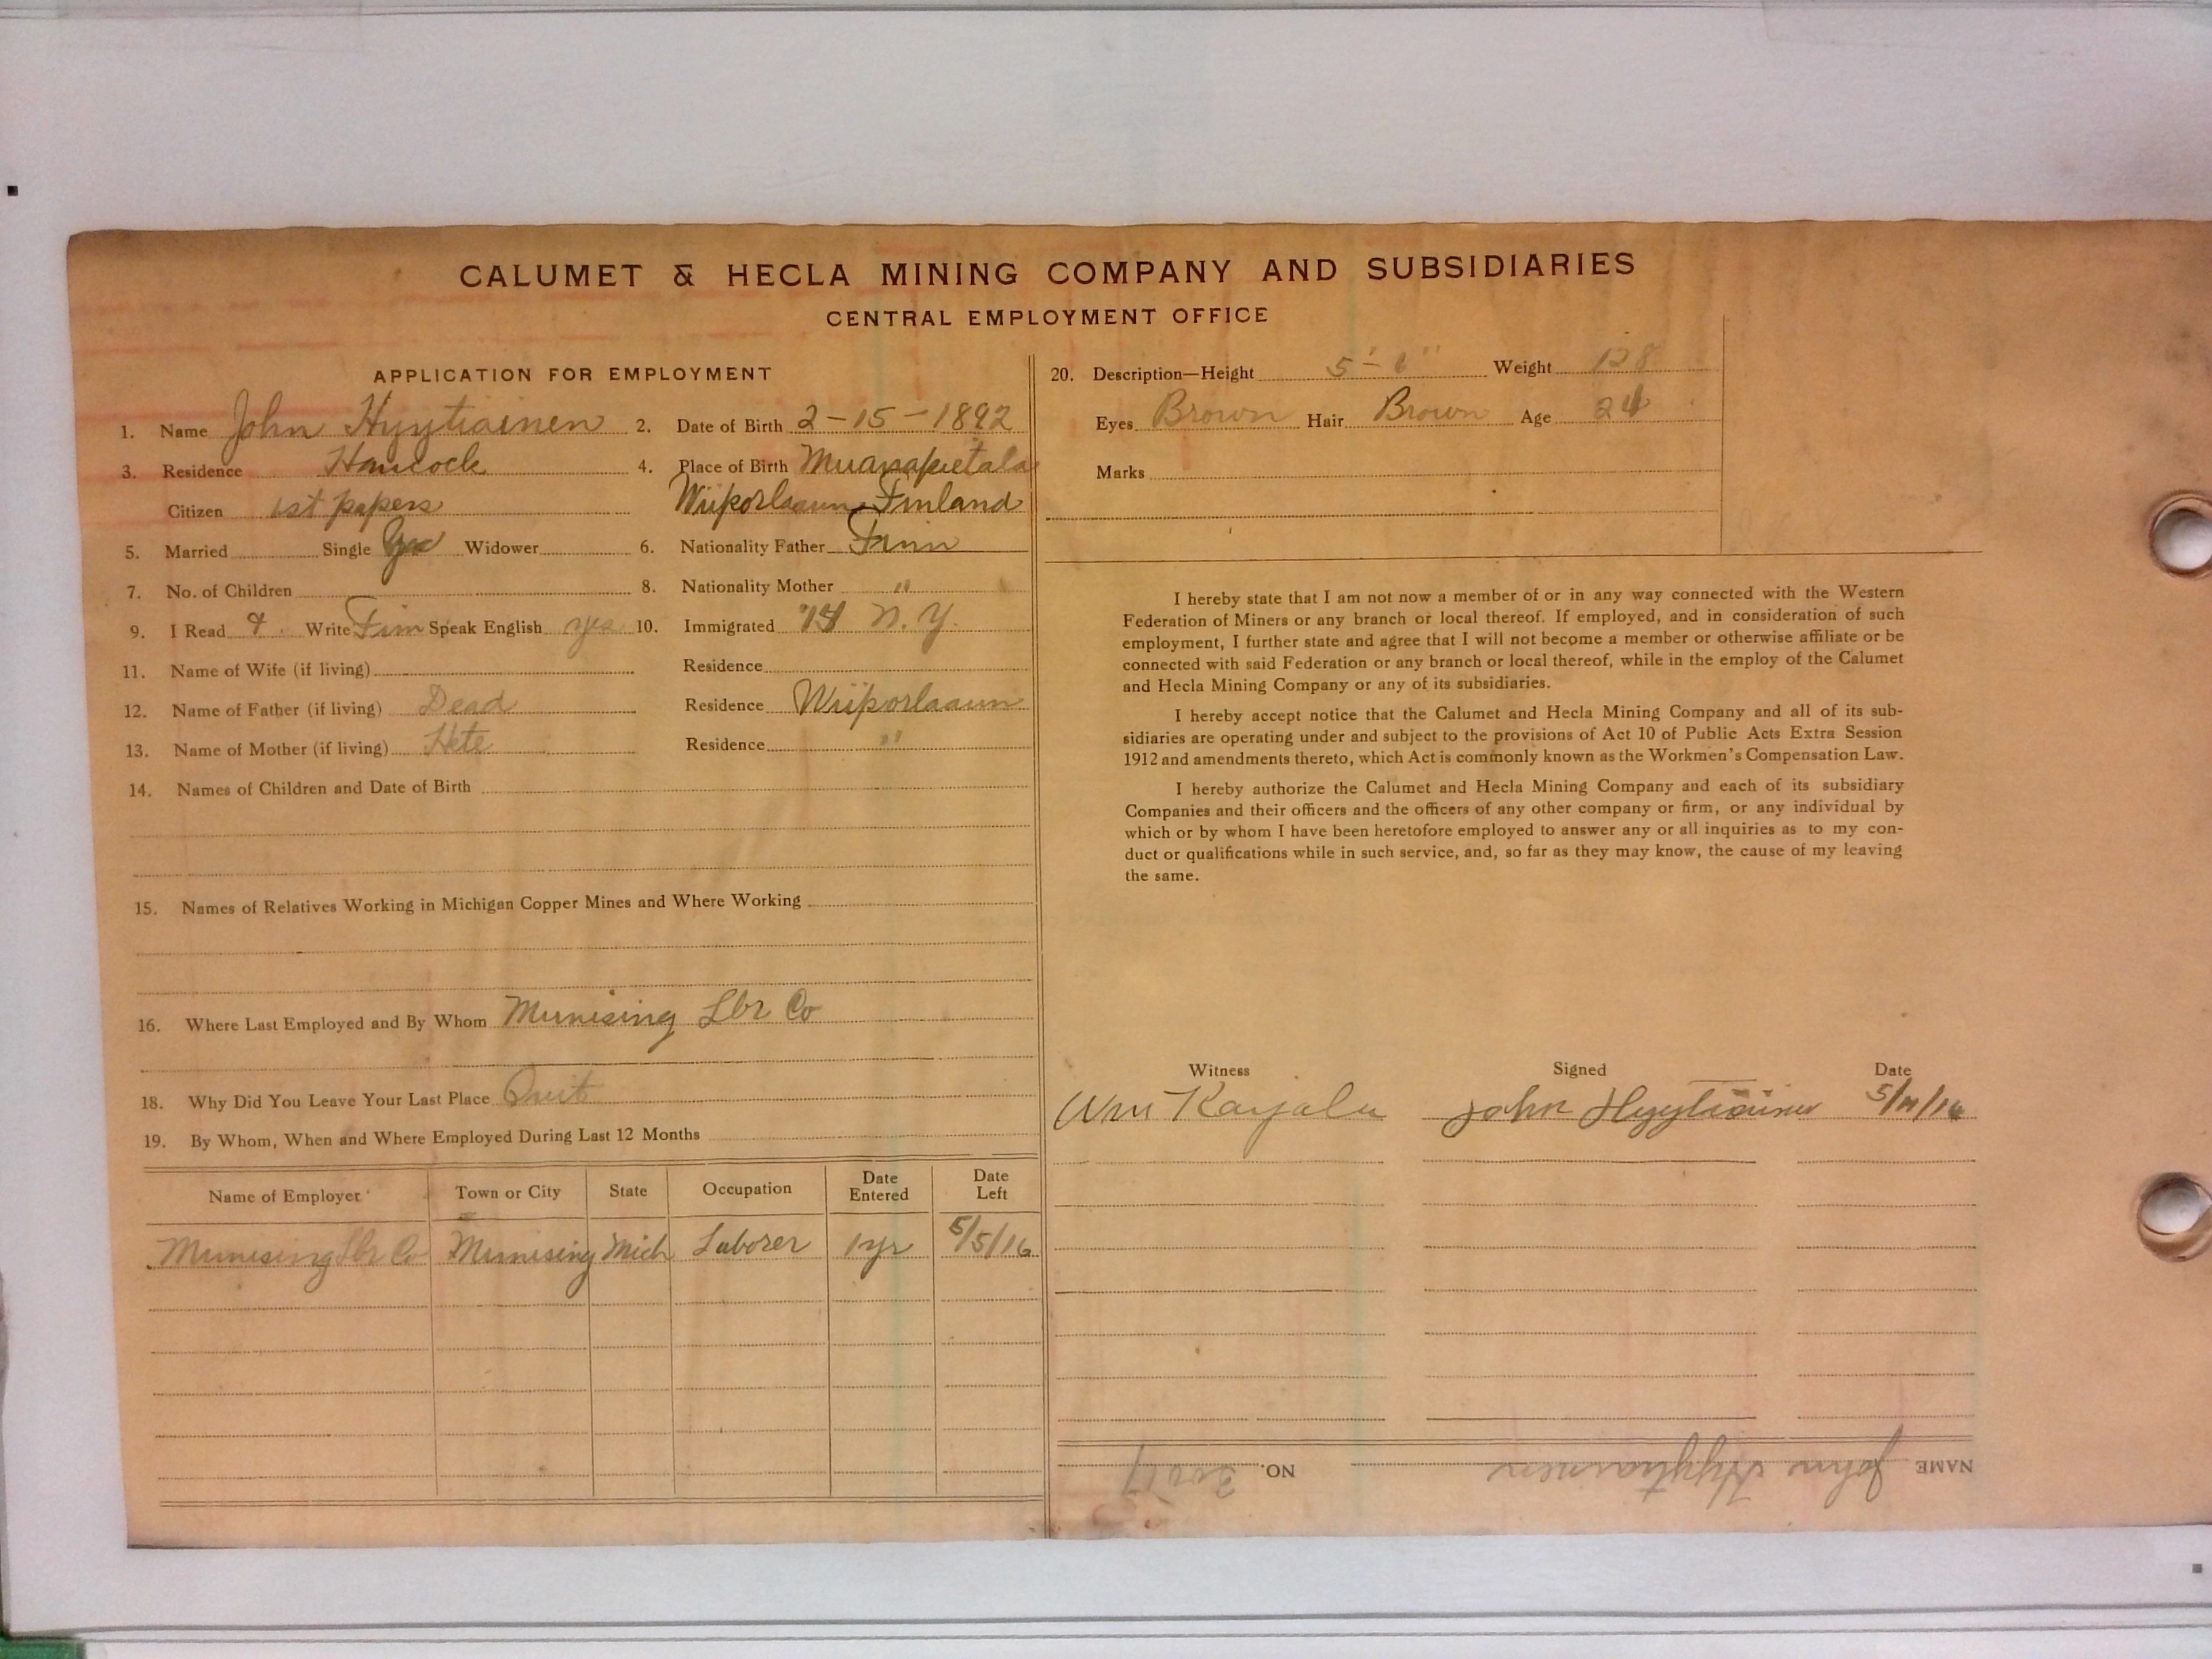 CALUMET & HECLA MINING COMPANY AND SUBSIDIARIES
CENTRAL EMPLOYMENT OFFICE
APPLICATION FOR EMPLOYMENT
1. Name John Hyytiainen 2. Date of Birth 2-15-1892
3. Residence Hancock 4. Place of Birth Muanapietala
Citizen 1st papers Wiiporlaaun Finland
5. Married Single Yes Widower 6. Nationality Father Finn
7. No. of Children 8. Nationality Mother "
9. I Read & Write Finn Speak English yes 10. Immigrated N.Y.
11. Name of Wife (if living) Residence
12. Name of Father (if living) Dead Residence Wiiporlaaun
13. Name of Mother (if living) Hete Residence "
14. Names of Children and Date of Birth
15. Names of Relatives Working in Michigan Copper Mines and Where Working
16. Where Last Employed and By Whom Munising Lbr Co
18. Why Did You Leave Your Last Place Quit
19. By Whom, When and Where Employed During Last 12 Months
Name of Employer Town or City State Occupation Date Entered Date Left
Munising Lbr Co Munising Mich Laborer 1 yr 5/5/16
20. Description—Height 5'-6" Weight 128
Eyes Brown Hair Brown Age 24
Marks
I hereby state that I am not now a member of or in any way connected with the Western
Federation of Miners or any branch or local thereof. If employed, and in consideration of such
employment, I further state and agree that I will not become a member or otherwise affiliate or be
connected with said Federation or any branch or local thereof, while in the employ of the Calumet
and Hecla Mining Company or any of its subsidiaries.
I hereby accept notice that the Calumet and Hecla Mining Company and all of its sub-
sidiaries are operating under and subject to the provisions of Act 10 of Public Acts Extra Session
1912 and amendments thereto, which Act is commonly known as the Workmen's Compensation Law.
I hereby authorize the Calumet and Hecla Mining Company and each of its subsidiary
Companies and their officers and the officers of any other company or firm, or any individual by
which or by whom I have been heretofore employed to answer any or all inquiries as to my con-
duct or qualifications while in such service, and, so far as they may know, the cause of my leaving
the same.
Witness Signed Date
Wm Karjala John Hyytiäinen
NAME John Hyytiainen NO.